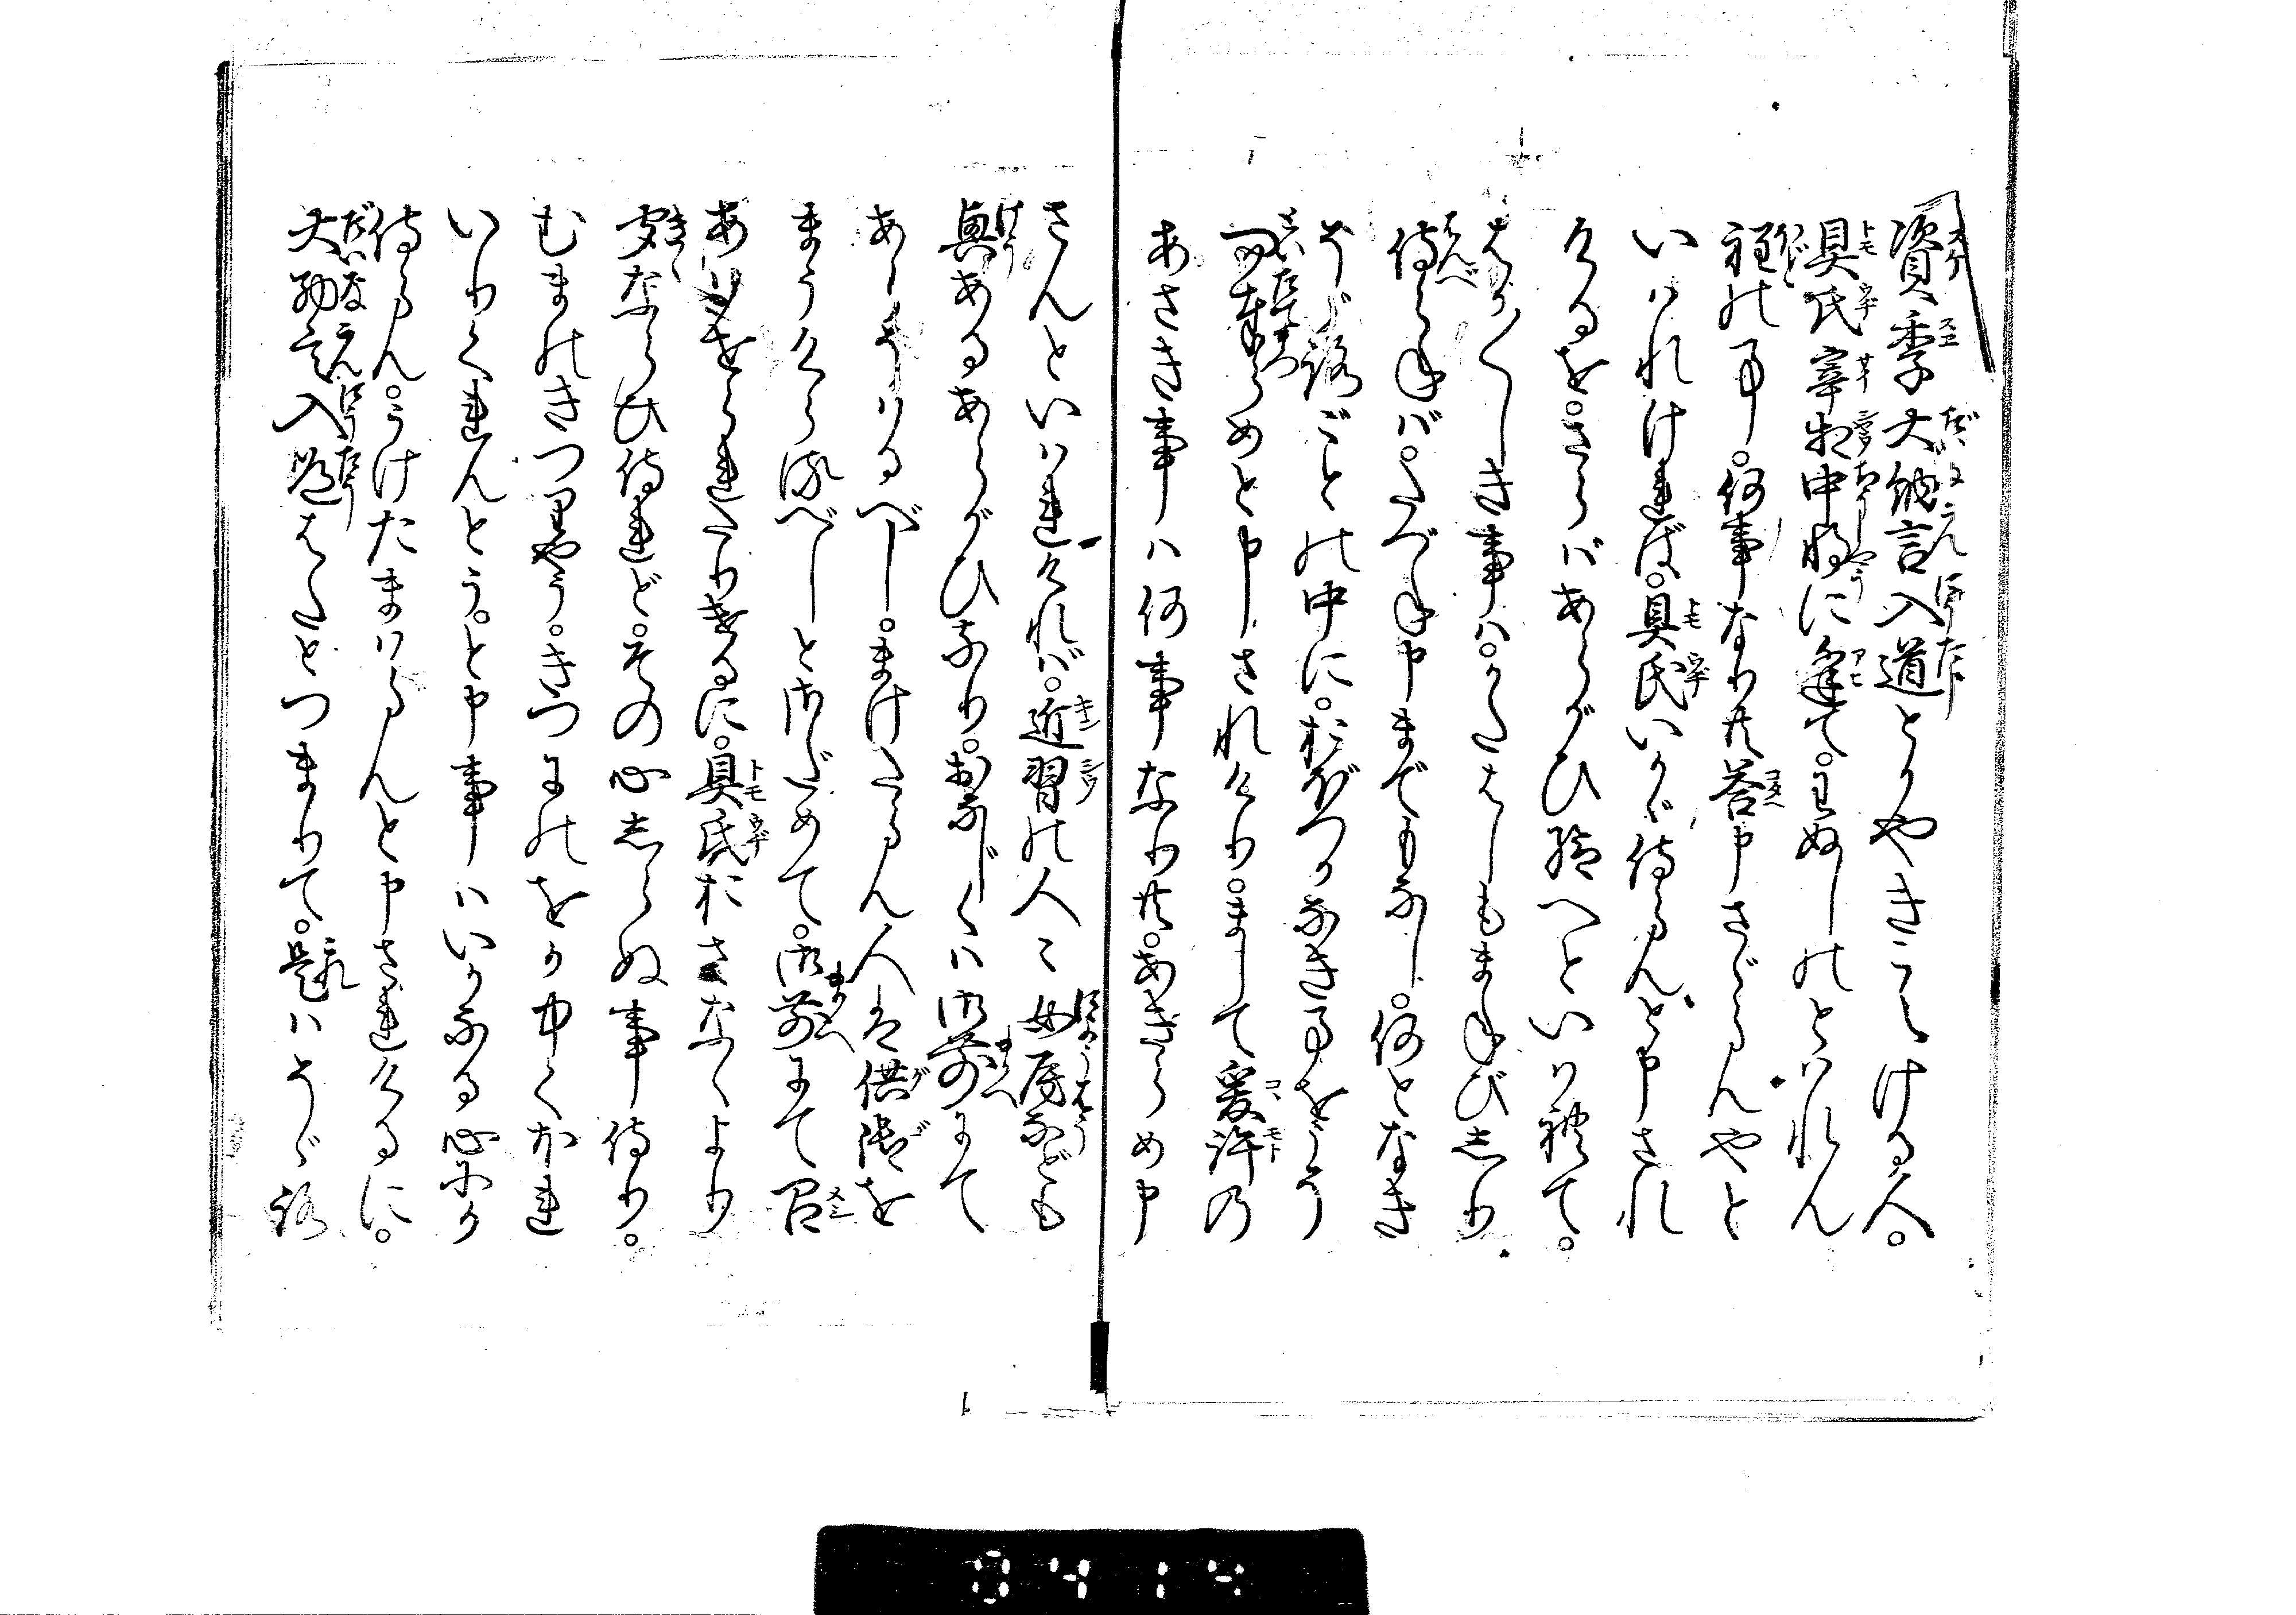 資季大納言入道とかやきこえける人。
具氏宰相中将に逢て。わぬしのとはれん
程の事。何事なりとも答申さゞらんやと
いはれければ。具氏いかゞ侍らんと申され
けるを。さらばあらがひ給へといはれて。
はか〴〵しき事は。かたはしもまねびしり
侍らねば。たづね申までもなし。何となき
そゞろごとの中に。おぼつかなき事をこそ
問奉らめと申されけり。まして爰許の
あさき事は何事なりとも。あきらめ申
さんといはれければ。近習の人々女房なども
興あるあらがひなり。おなじくは御前にて
あらそはるべし。まけたらん人は供御を
まうけらるべしとさだめて。御前にて召
あはせられたりけるに。具氏おさなくより
聞ならひ侍れど。その心しらぬ事侍り。
むまのきつりやう。きつにのをか中くぼれ
いりくれんとうと申事はいかなる心にか
侍らん。うけたまはらんと申されけるに。
大納言入道はたとつまりて。是はそゞろ